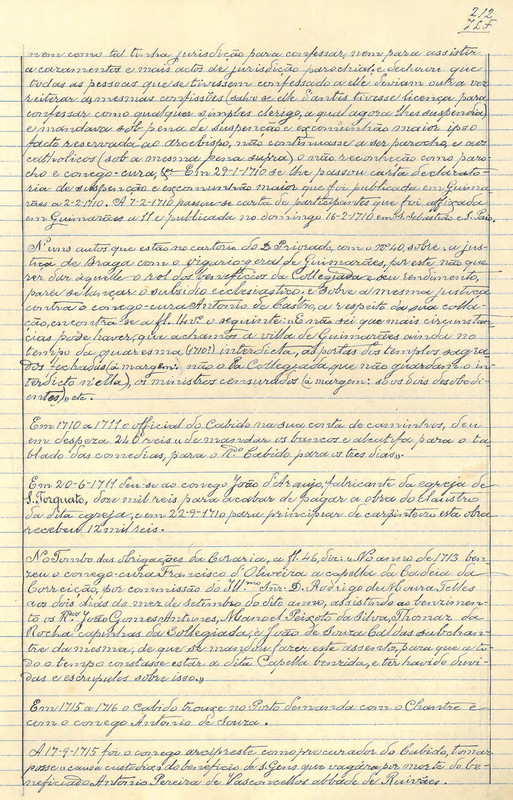 212
JLF
nem como tal tinha jurisdicção para confessar, nem para assistir
a cazamentos e mais actos de jurisdicção parochial, e declarou que
todas as pessoas que se tivessem confessado a elle deviam outra vez
reiterar as mesmas confissões (salvo se elle d'antes tivesse licença para
confessar como qualquer simples clerigo, a qual agora thes suspendia)
e mandava sob pena de suspenção e excommunhão maior ipso
facto reservada ao Arcebispo, não continuasse a ser parocho, e aos
catholicos (sob a mesma pena supra) o não reconheção como paro-
cho e conego-cura, &c. Em 29-1-1710 se lhe passou carta declarato-
ria de suspenção e excomunhão maior que foi publicada em Guima-
rães a 2-2-1710. A 7-2-1710 passou-se carta de participantes que foi afixada
em Guimarães a 11 e publicada no domingo 16-2-1710 em S. Sebastião e S. Paio.
N'uns autos que estão no cartorio do D. Priorado, com o nº 40, sobre: a jus-
tiça de Braga com o vigario geral de Guimarães, por este não que-
rer dar áquelle o rol dos beneficios da Collegiada e seu rendimento,
para se lançar o subsidio ecclesiastico. E sobre a mesma justiça
contra o conego-cura Antonio de Castro, a respeito da sua colla-
ção, encontra-se a fl. 14 vº. o seguinte: «E não sei que mais circunstan-
cias póde haver, que achamos a villa de Guimarães ainda no
tempo da quaresma (1710) interdicta, as portas dos templos sagra-
dos fechadas (á margem: não o da Collegiada, que não guardam o in-
terdicto n'ella), os ministros censurados (á margem: só os dois desobedi-
entes)» etc.
Em 1710 a 1711 o official do Cabido na sua conta de caminhos, deu
em despeza 240 reis «de mandar os bancos e alcatifa, para o ta-
blado das comedias, para o Rdo Cabido para os tres dias».
Em 20-6-1711 deu-se ao conego João d'Araujo, fabricante da egreja de
S. Torquato, doze mil reis para acabar de pagar a obra do claustro
da dita egreja, e em 22-9-1710 para principiar de carpinteiro esta obra
recebeu 12 mil reis.
No Tombo das obrigações da Coraria, a fl. 46, diz: «No anno de 1713 ben-
zeu o conego-cura Francisco d'Oliveira a capella da Cadeia da
Correição, por commissão do Illmo Snr. D. Rodrigo de Moura Telles
aos dois dias do mez de setembro do dito anno, assistindo ao benzimen-
to os Rdos João Gomes Antunes, Manoel Peixoto da Silva, Thomaz da
Rocha capinhas da Collegiada, e João de Souza Caldas subchan-
tre da mesma, de que se mandou fazer este assento, para que a to-
do o tempo constasse estar a dita Capella benzida, e ter havido duvi-
das e escrupulos sobre isso.»
Em 1715 a 1716 o Cabido trouxe no Porto demanda com o Chantre e
com o conego Antonio de Souza.
A 17-9-1715 foi o conego arcipreste como procurador do Cabido, tomar
posse «causa custodiæ» do beneficio de S. Gens que vagára, por morte do be-
neficiado Antonio Pereira de Vasconcellos abbade de Ruivães.